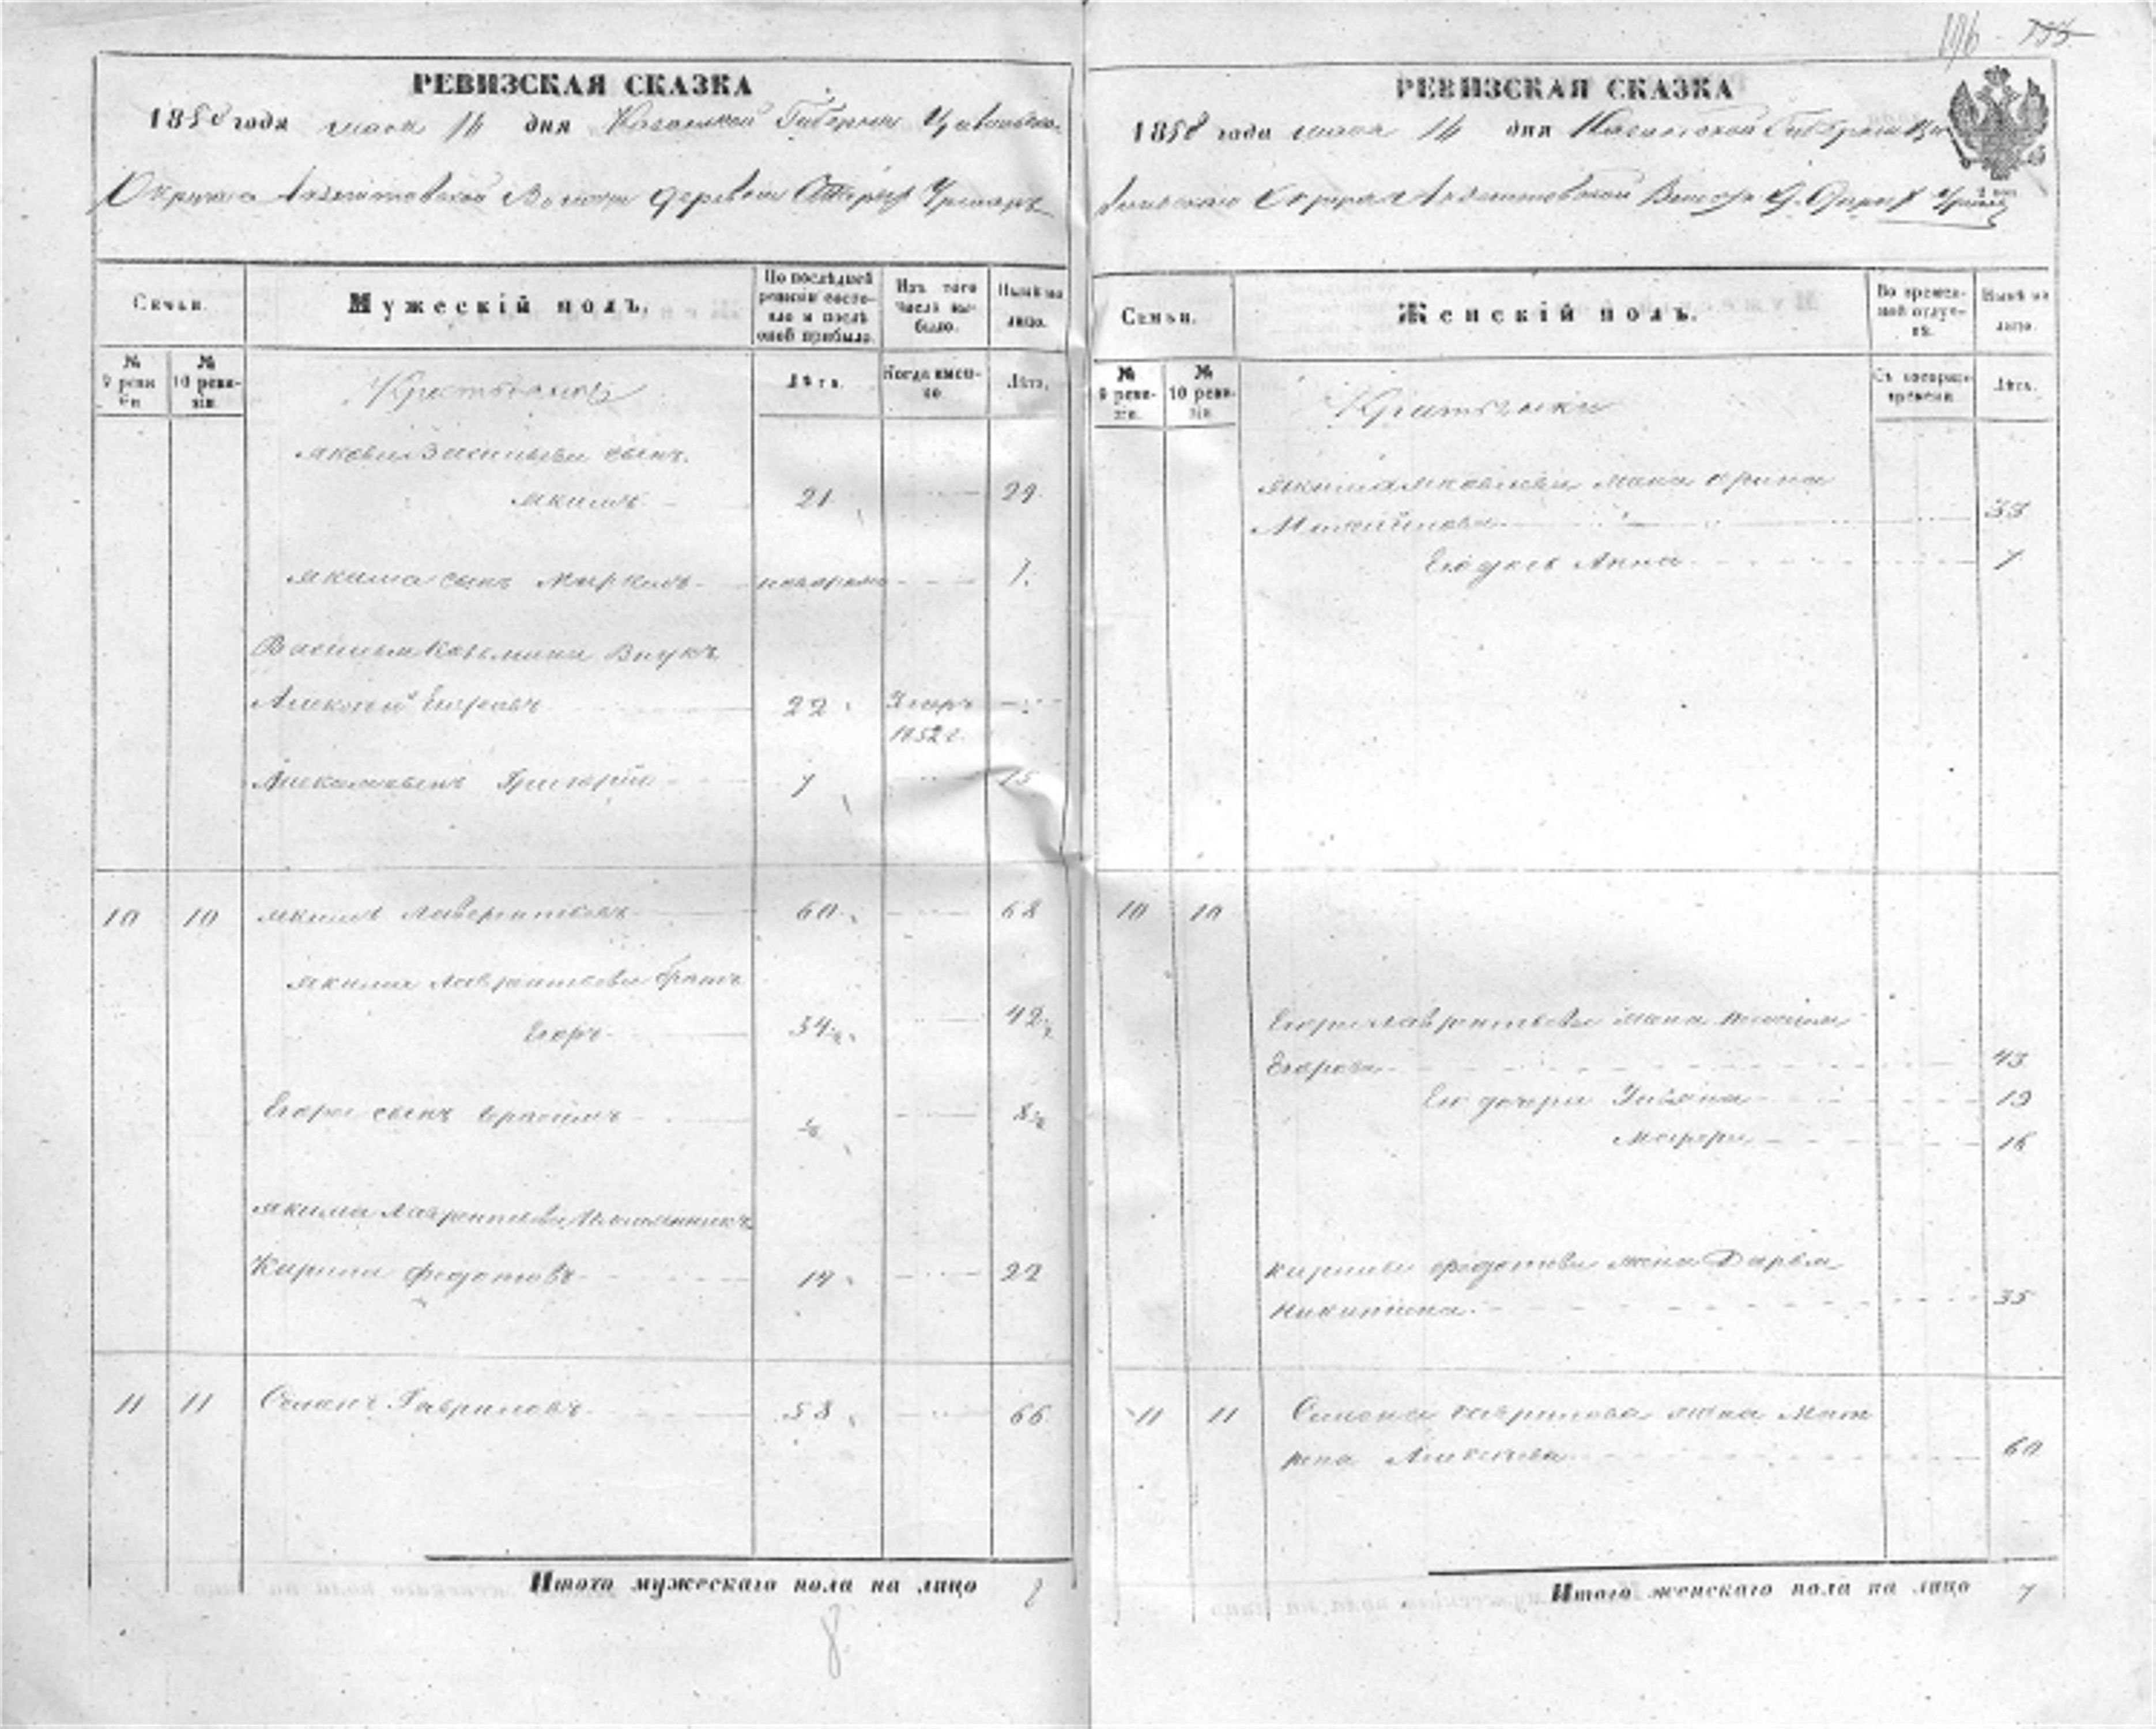 196
РЕВИЗСКАЯ СКАЗКА
1858 года мая 16 дня Казанской Губернии Цивильска
Округа Волости деревни Урмары
Семьи.
Мужескій полъ.
По послѣдней ревизіи состояло и послѣ оной прибыло.
Изъ того числа выбыло.
Нынѣ на лицо.
№ 9 ревизіи
№ 10 ревизіи.
Лѣта.
Когда именно
Лѣта.
Крестьяновъ
Якова Васильева сынъ.
Якимъ 21 29
Якима сынъ новорож 7
Василья Козьмина внукъ
Алексей Егоровъ 22 Умеръ
1852 г.
Алексея сынъ Григорій 7 15
10 10 Якимъ Лаврентьевъ 60 68
Якима Лаврентьева братъ
Егоръ 34½ 42½
Егора сынъ Герасимъ ½ 8½
Якима Лаврентьева племянникъ
Кирила Федотовъ 14 22
11 11 Семенъ Гавриловъ 58 66
Итого мужескаго пола на лицо 8
8
РЕВИЗСКАЯ СКАЗКА
1858 года мая 16 дня Казанской Губерніи Ци
вильскаго Округа Волости Д.
Семьи.
Женскій полъ.
Во временной отлучкѣ.
Нынѣ на лицо.
№ 9 ревизіи.
№ 10 ревизіи.
Съ котораго времени.
Лѣта.
Крестьянки
Якима Яковлева жена Ирина
33
Его дочь Анна 7
10 10
Егора Лаврентьева жена
Егорова 43
Его дочери Ульяна 19
16
Кирилы Федотова жена Дарья
Никитина 35
11 11 Семена Гаврилова жена Мат
рена Алексеева 60
Итого женскаго пола на лицо 7